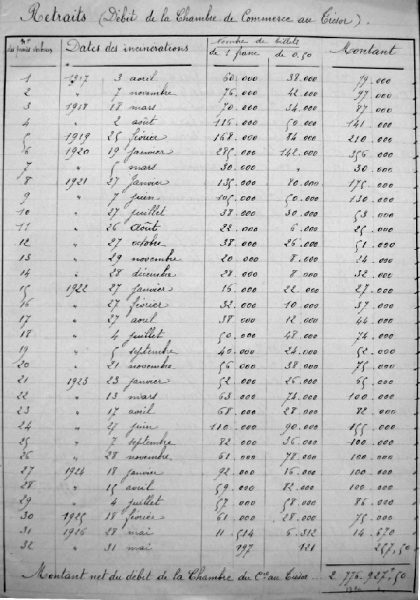 Retraits (Débit de la Chambre de Commerce au Trésor).
Nos des procès verbaux Dates des incinérations Nombre de billets de 1 franc de 0.50 Montant
1 1917 3 avril 60.000 38.000 79.000
2 " 7 novembre 76.000 42.000 97.000
3 1918 18 mars 70.000 34.000 87.000
4 " 2 août 116.000 50.000 141.000
5 1919 25 février 168.000 84.000 210.000
6 1920 19 janvier 285.000 142.000 356.000
7 " 5 mars 30.000 " 30.000
8 1921 27 janvier 135.000 80.000 175.000
9 " 7 juin 105.000 50.000 130.000
10 " 27 juillet 38.000 30.000 53.000
11 " 26 août 22.000 6.000 25.000
12 " 27 octobre 38.000 26.000 51.000
13 " 29 novembre 20.000 8.000 24.000
14 " 28 décembre 28.000 8.000 32.000
15 1922 27 janvier 16.000 22.000 27.000
16 " 27 février 32.000 10.000 37.000
17 " 27 avril 38.000 12.000 44.000
18 " 4 juillet 50.000 48.000 74.000
19 " 5 septembre 40.000 24.000 52.000
20 " 21 novembre 56.000 38.000 75.000
21 1923 23 janvier 52.000 26.000 65.000
22 " 13 mars 63.000 74.000 100.000
23 " 17 avril 68.000 28.000 82.000
24 " 27 juin 110.000 90.000 155.000
25 " 7 septembre 82.000 36.000 100.000
26 " 28 novembre 61.000 78.000 100.000
27 1924 18 janvier 92.000 16.000 100.000
28 " 15 avril 59.000 82.000 100.000
29 " 4 juillet 57.000 58.000 86.000
30 1925 18 février 61.000 28.000 75.000
31 1926 28 mai 11.514 6.312 14.670
32 " 31 mai 197 121 257,50
Montant net du débit de la Chambre de Cce au Trésor 2.776.927f,50